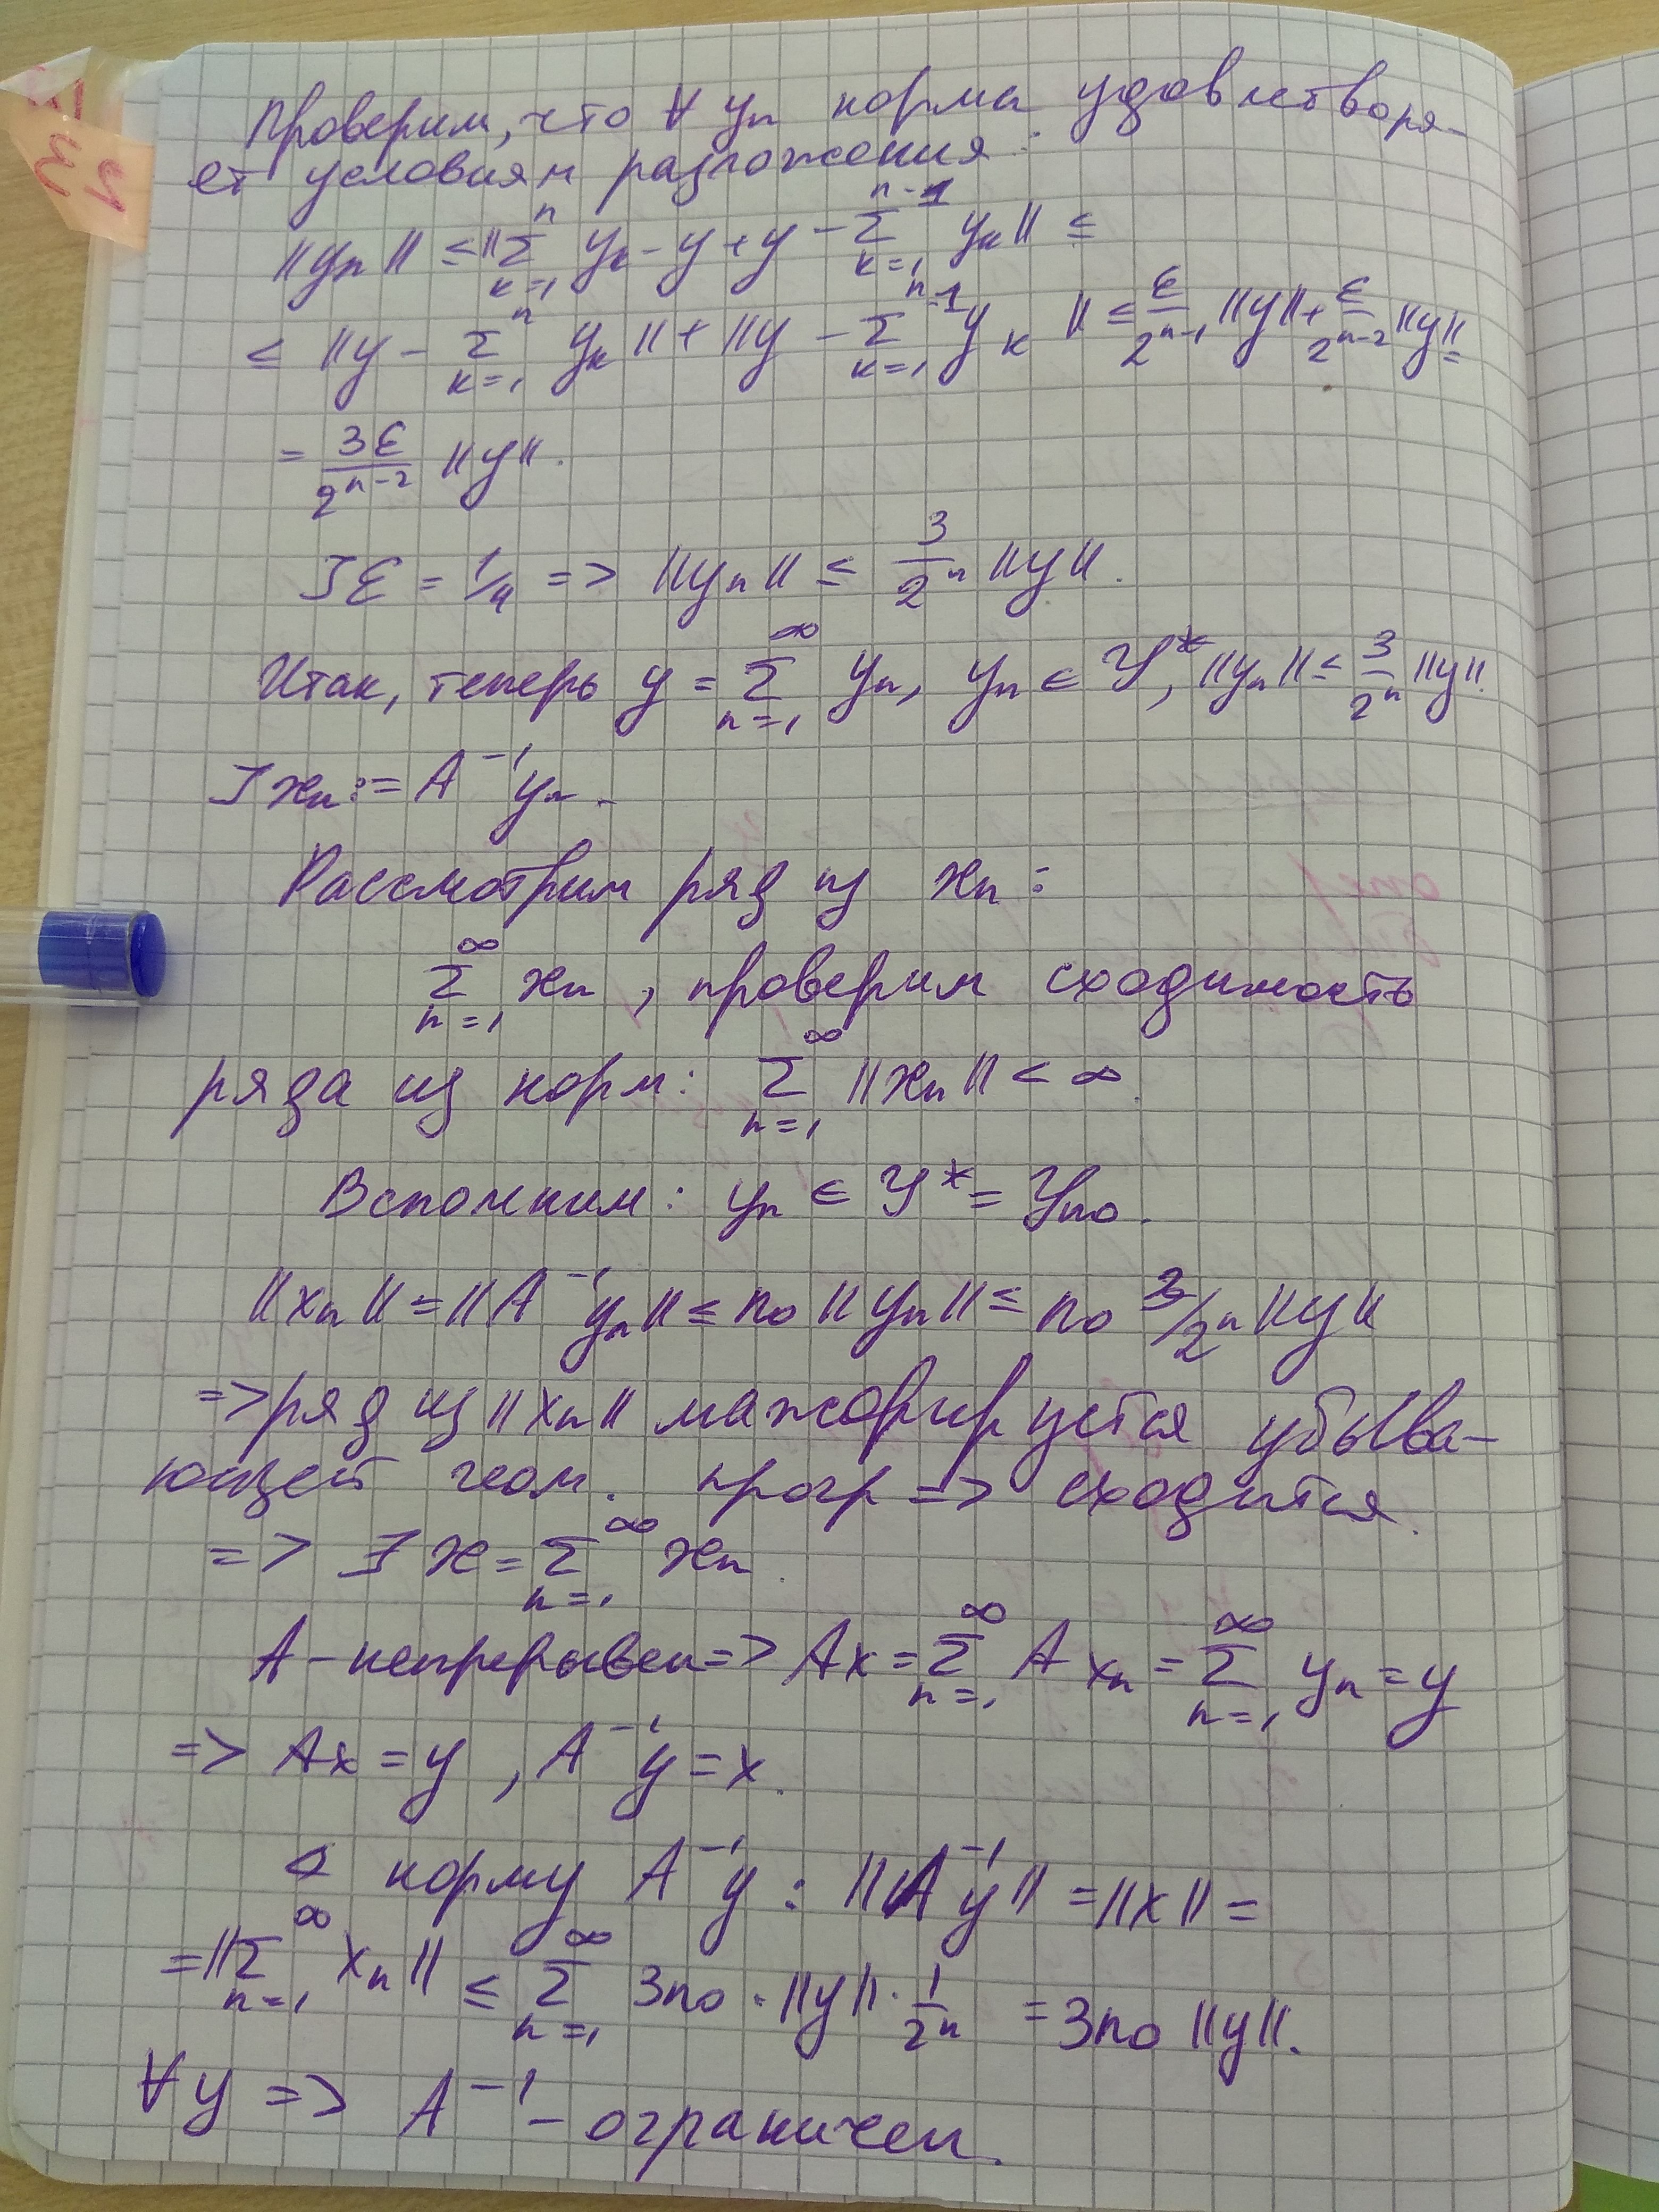 Проверим, что ∀ yₙ норма удовлетворя-
ет условиям разложения:
||yₙ|| ≤ ||∑_{k=1}^{n} yₖ - y + y - ∑_{k=1}^{n-1} yₖ|| ≤
≤ ||y - ∑_{k=1}^{n} yₖ|| + ||y - ∑_{k=1}^{n-1} yₖ|| ≤ ε/2^{n-1} ||y|| + ε/2^{n-2} ||y|| =
= 3ε/2^{n-2} ||y||.
Jε = 1/4 => ||yₙ|| ≤ 3/2ⁿ ||y||.
Итак, теперь y = ∑_{n=1}^{∞} yₙ, yₙ ∈ Y*, ||yₙ|| ≤ 3/2ⁿ ||y||.
J xₙ := A⁻¹yₙ.
Рассмотрим ряд из xₙ:
∑_{n=1}^{∞} xₙ, проверим сходимость
ряда из норм: ∑_{n=1}^{∞} ||xₙ|| < ∞.
Вспомним: yₙ ∈ Y* = Y_{n₀}.
||xₙ|| = ||A⁻¹yₙ|| ≤ n₀ ||yₙ|| ≤ n₀ 3/2ⁿ ||y||
=> ряд из ||xₙ|| мажорируется убыва-
ющей геом. прогр => сходится.
=> ∃ x = ∑_{n=1}^{∞} xₙ.
A - непрерывен => Ax = ∑_{n=1}^{∞} A xₙ = ∑_{n=1}^{∞} yₙ = y
=> Ax = y, A⁻¹y = x.
норму A⁻¹y: ||A⁻¹y|| = ||x|| =
= ||∑_{n=1}^{∞} xₙ|| ≤ ∑_{n=1}^{∞} 3n₀ · ||y|| · 1/2ⁿ = 3n₀ ||y||.
∀ y => A⁻¹ - ограничен.